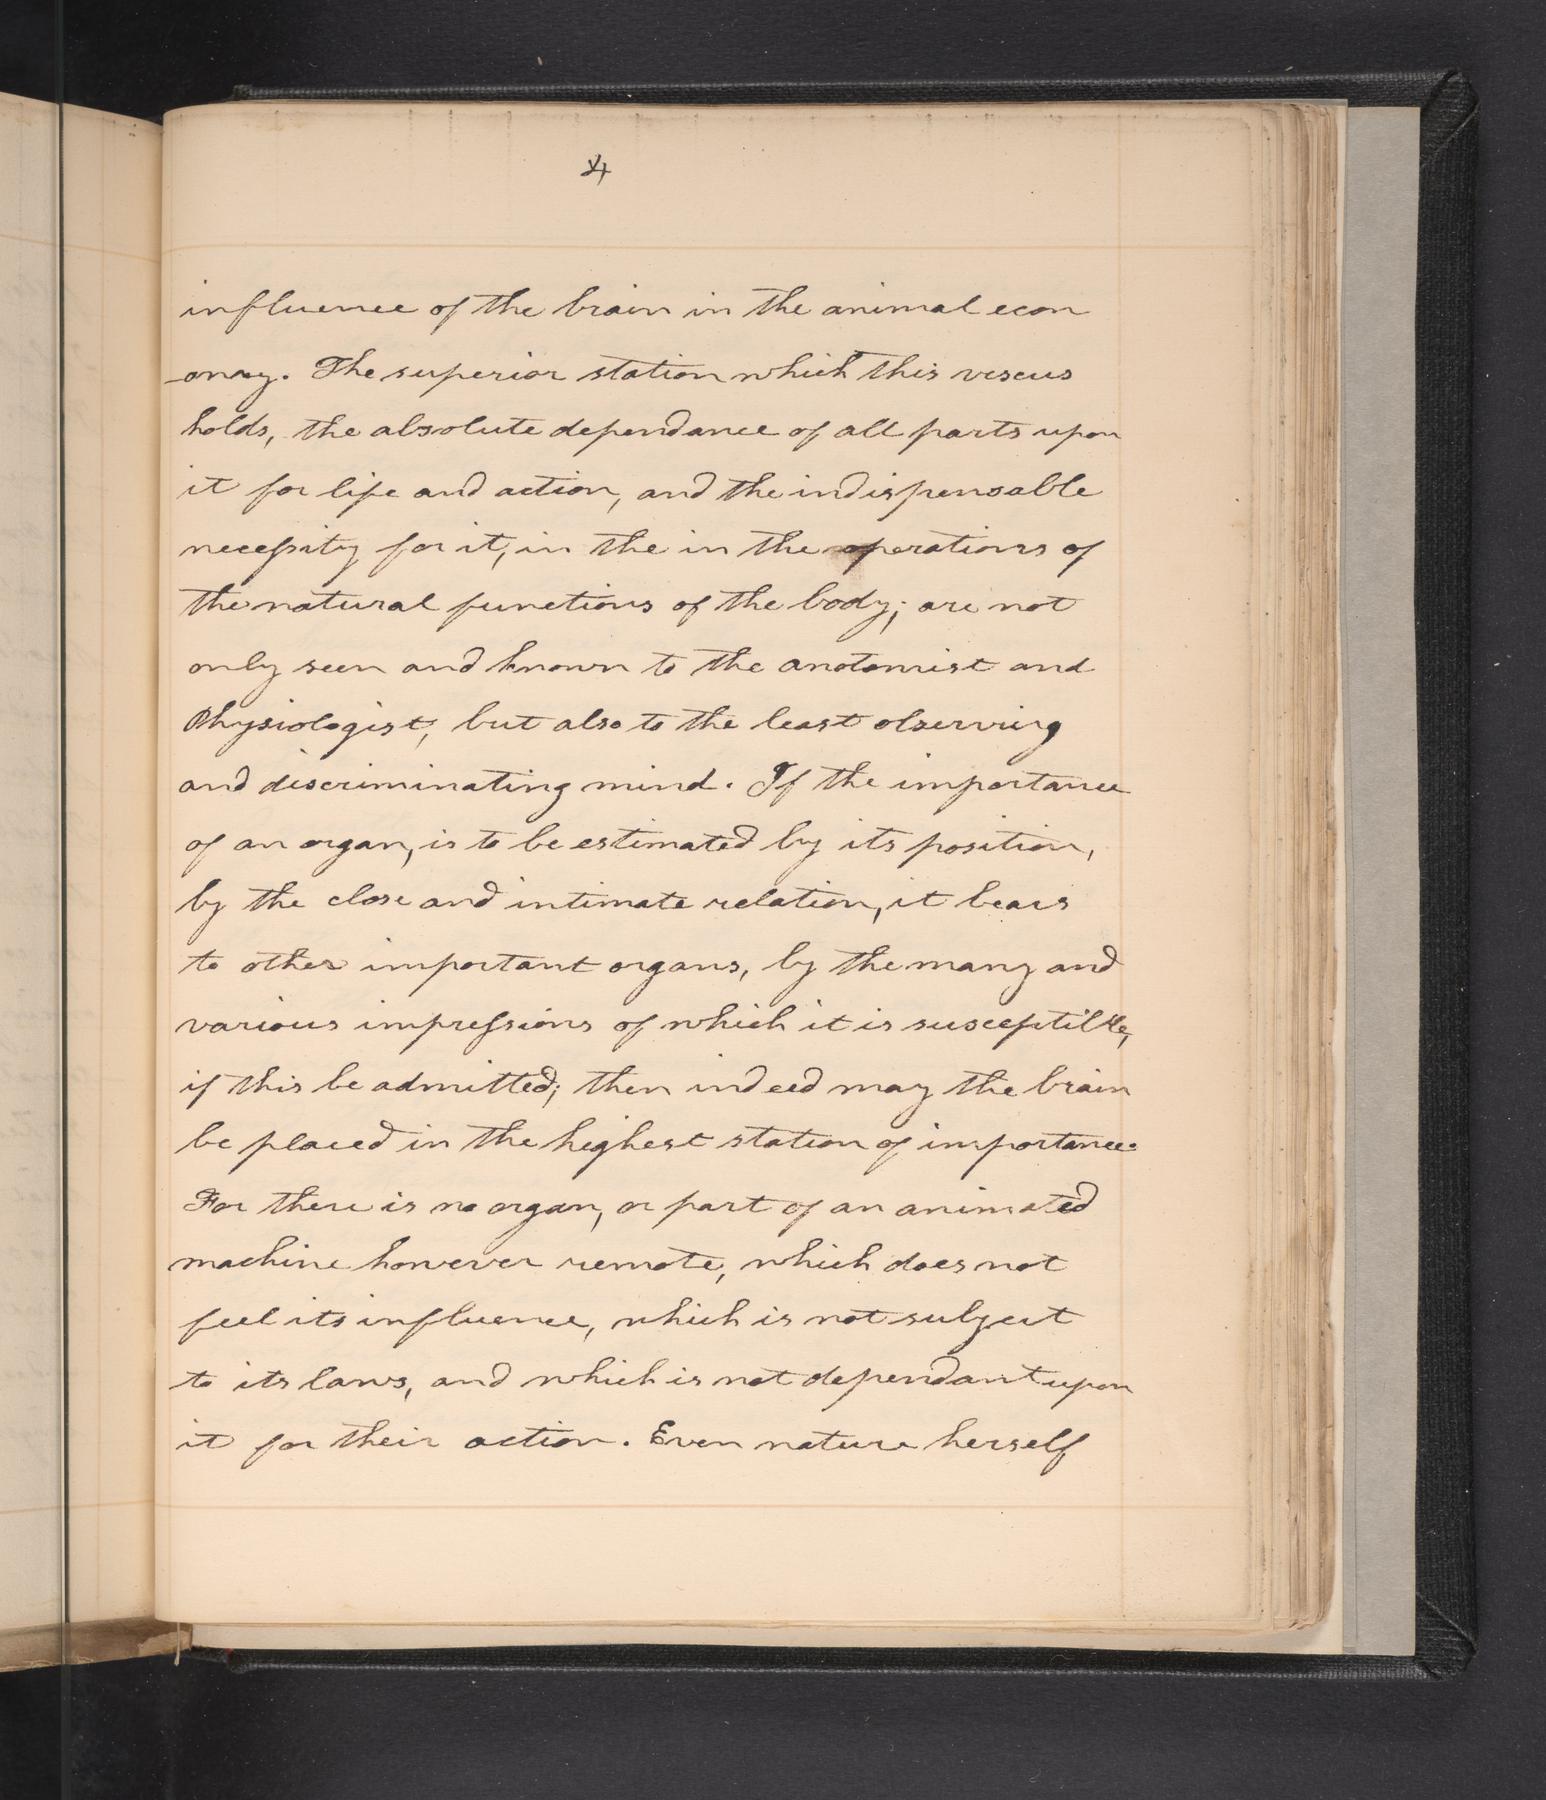 4
influence of the brain in the animal econ
-omy. The superior station which this viscus
holds, the absolute dependance of all parts upon
it for life and action, and the indispensable
necessity for it, in the in the operations of
the natural functions of the body; are not
only seen and known to the anatomist and
Physiologist, but also to the least observing
and discriminating mind. If the importance
of an organ, is to be estimated by its position,
by the close and intimate relation, it bears
to other important organs, by the many and
various impressions of which it is susceptible,
if this be admitted; then indeed may the brain
be placed in the highest station of importance.
For there is no organ, or part of an animated
machine however remote, which does not
feel its influence, which is not subject
to its laws, and which is not dependant upon
it for their action. Even nature herself